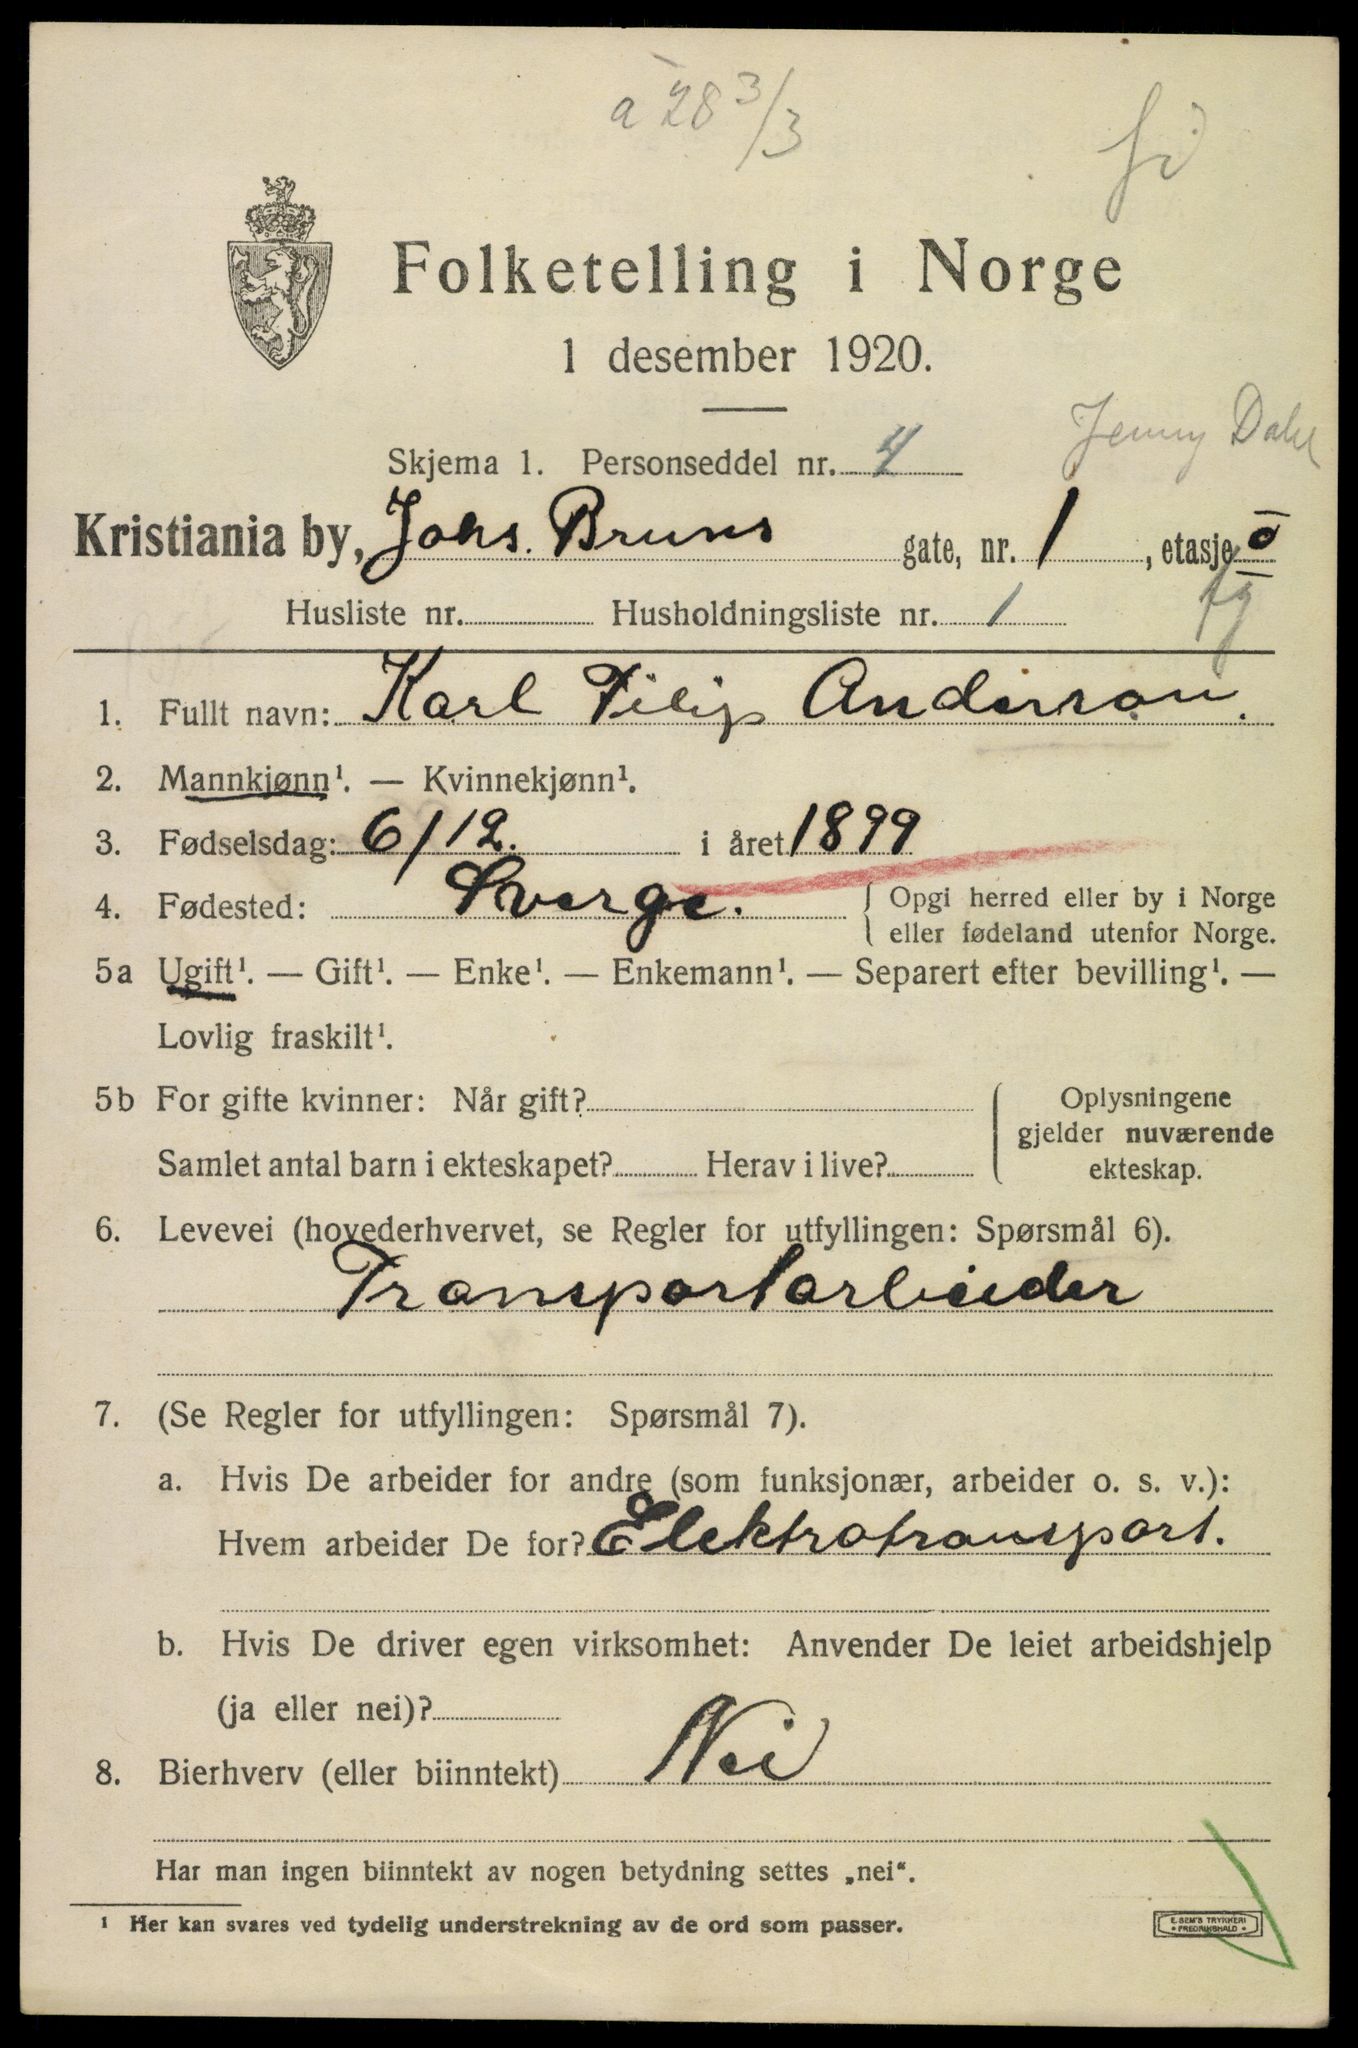 a 28 3/3
Folketelling i Norge
1 desember 1920.
Jenny Dahl
Skjema 1. Personseddel nr. 4
Kristiania by, Johs. Bruns gate, nr. 1, etasje
Husliste nr. Husholdningsliste nr. 1
1. Fullt navn: Karl Filip Anderson.
2. Mannkjønn¹. — Kvinnekjønn¹.
3. Fødselsdag: 6/12. i året 1899
4. Fødested: Sverge. { Opgi herred eller by i Norge
eller fødeland utenfor Norge.
5a Ugift¹. — Gift¹. — Enke¹. — Enkemann¹. — Separert efter bevilling¹. —
Lovlig fraskilt¹.
5b For gifte kvinner: Når gift? { Oplysningene
gjelder nuværende
Samlet antal barn i ekteskapet? Herav i live? ekteskap.
6. Levevei (hovederhvervet, se Regler for utfyllingen: Spørsmål 6).
Transportarbeider
7. (Se Regler for utfyllingen: Spørsmål 7).
a. Hvis De arbeider for andre (som funksjonær, arbeider o. s. v.):
Hvem arbeider De for? Elektrotransport.
b. Hvis De driver egen virksomhet: Anvender De leiet arbeidshjelp
(ja eller nei)?
8. Bierhverv (eller biinntekt) Nei
Har man ingen biinntekt av nogen betydning settes „nei“.
¹ Her kan svares ved tydelig understrekning av de ord som passer.
E. SEM'S TRYKKERI
FREDRIKSHALD